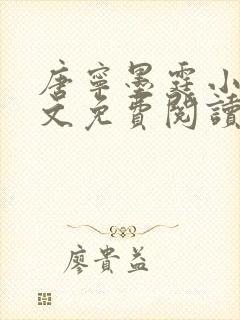 唐寧墨霆小
文免費閱讀
廖貴益